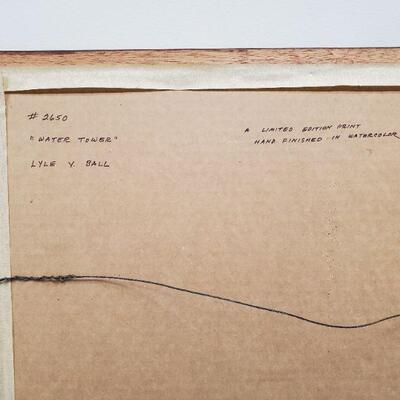 # 2650
"WATER TOWER"
LYLE V. BALL
A LIMITED EDITION PRINT
HAND FINISHED IN WATERCOLOR